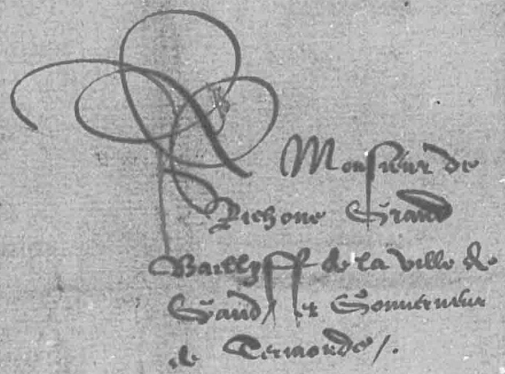 A Monsieur de
Richone Grand
Bailliyff de la ville de
Gand / et Gouverneur
de Termonde /.